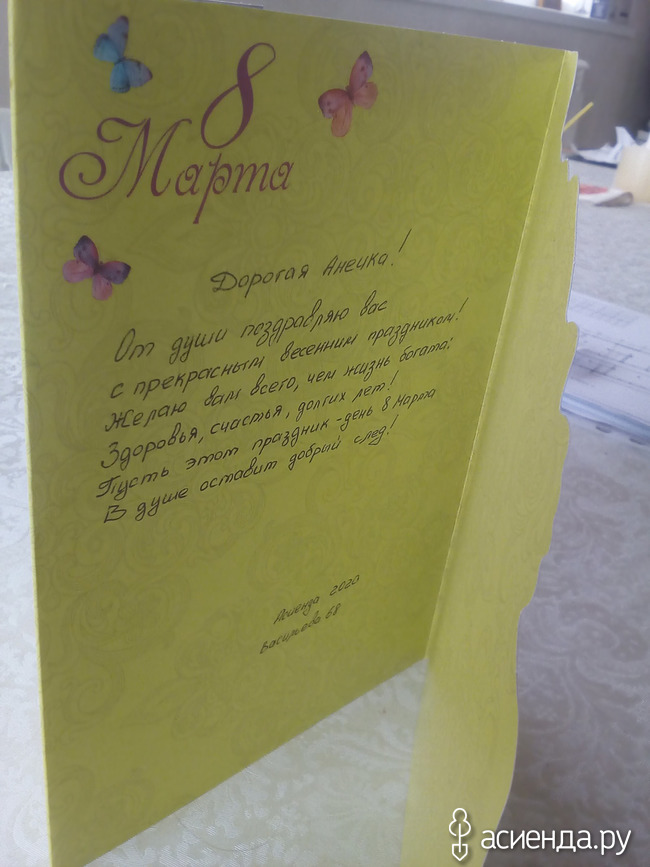 8
Марта
Дорогая Анечка!
От души поздравляю вас
с прекрасным весенним праздником!
Желаю вам всего, чем жизнь богата:
Здоровья, счастья, долгих лет!
Пусть этот праздник - день 8 Марта
В душе оставит добрый след!
Асиенда 2020
Васильева 68
асиенда.ру